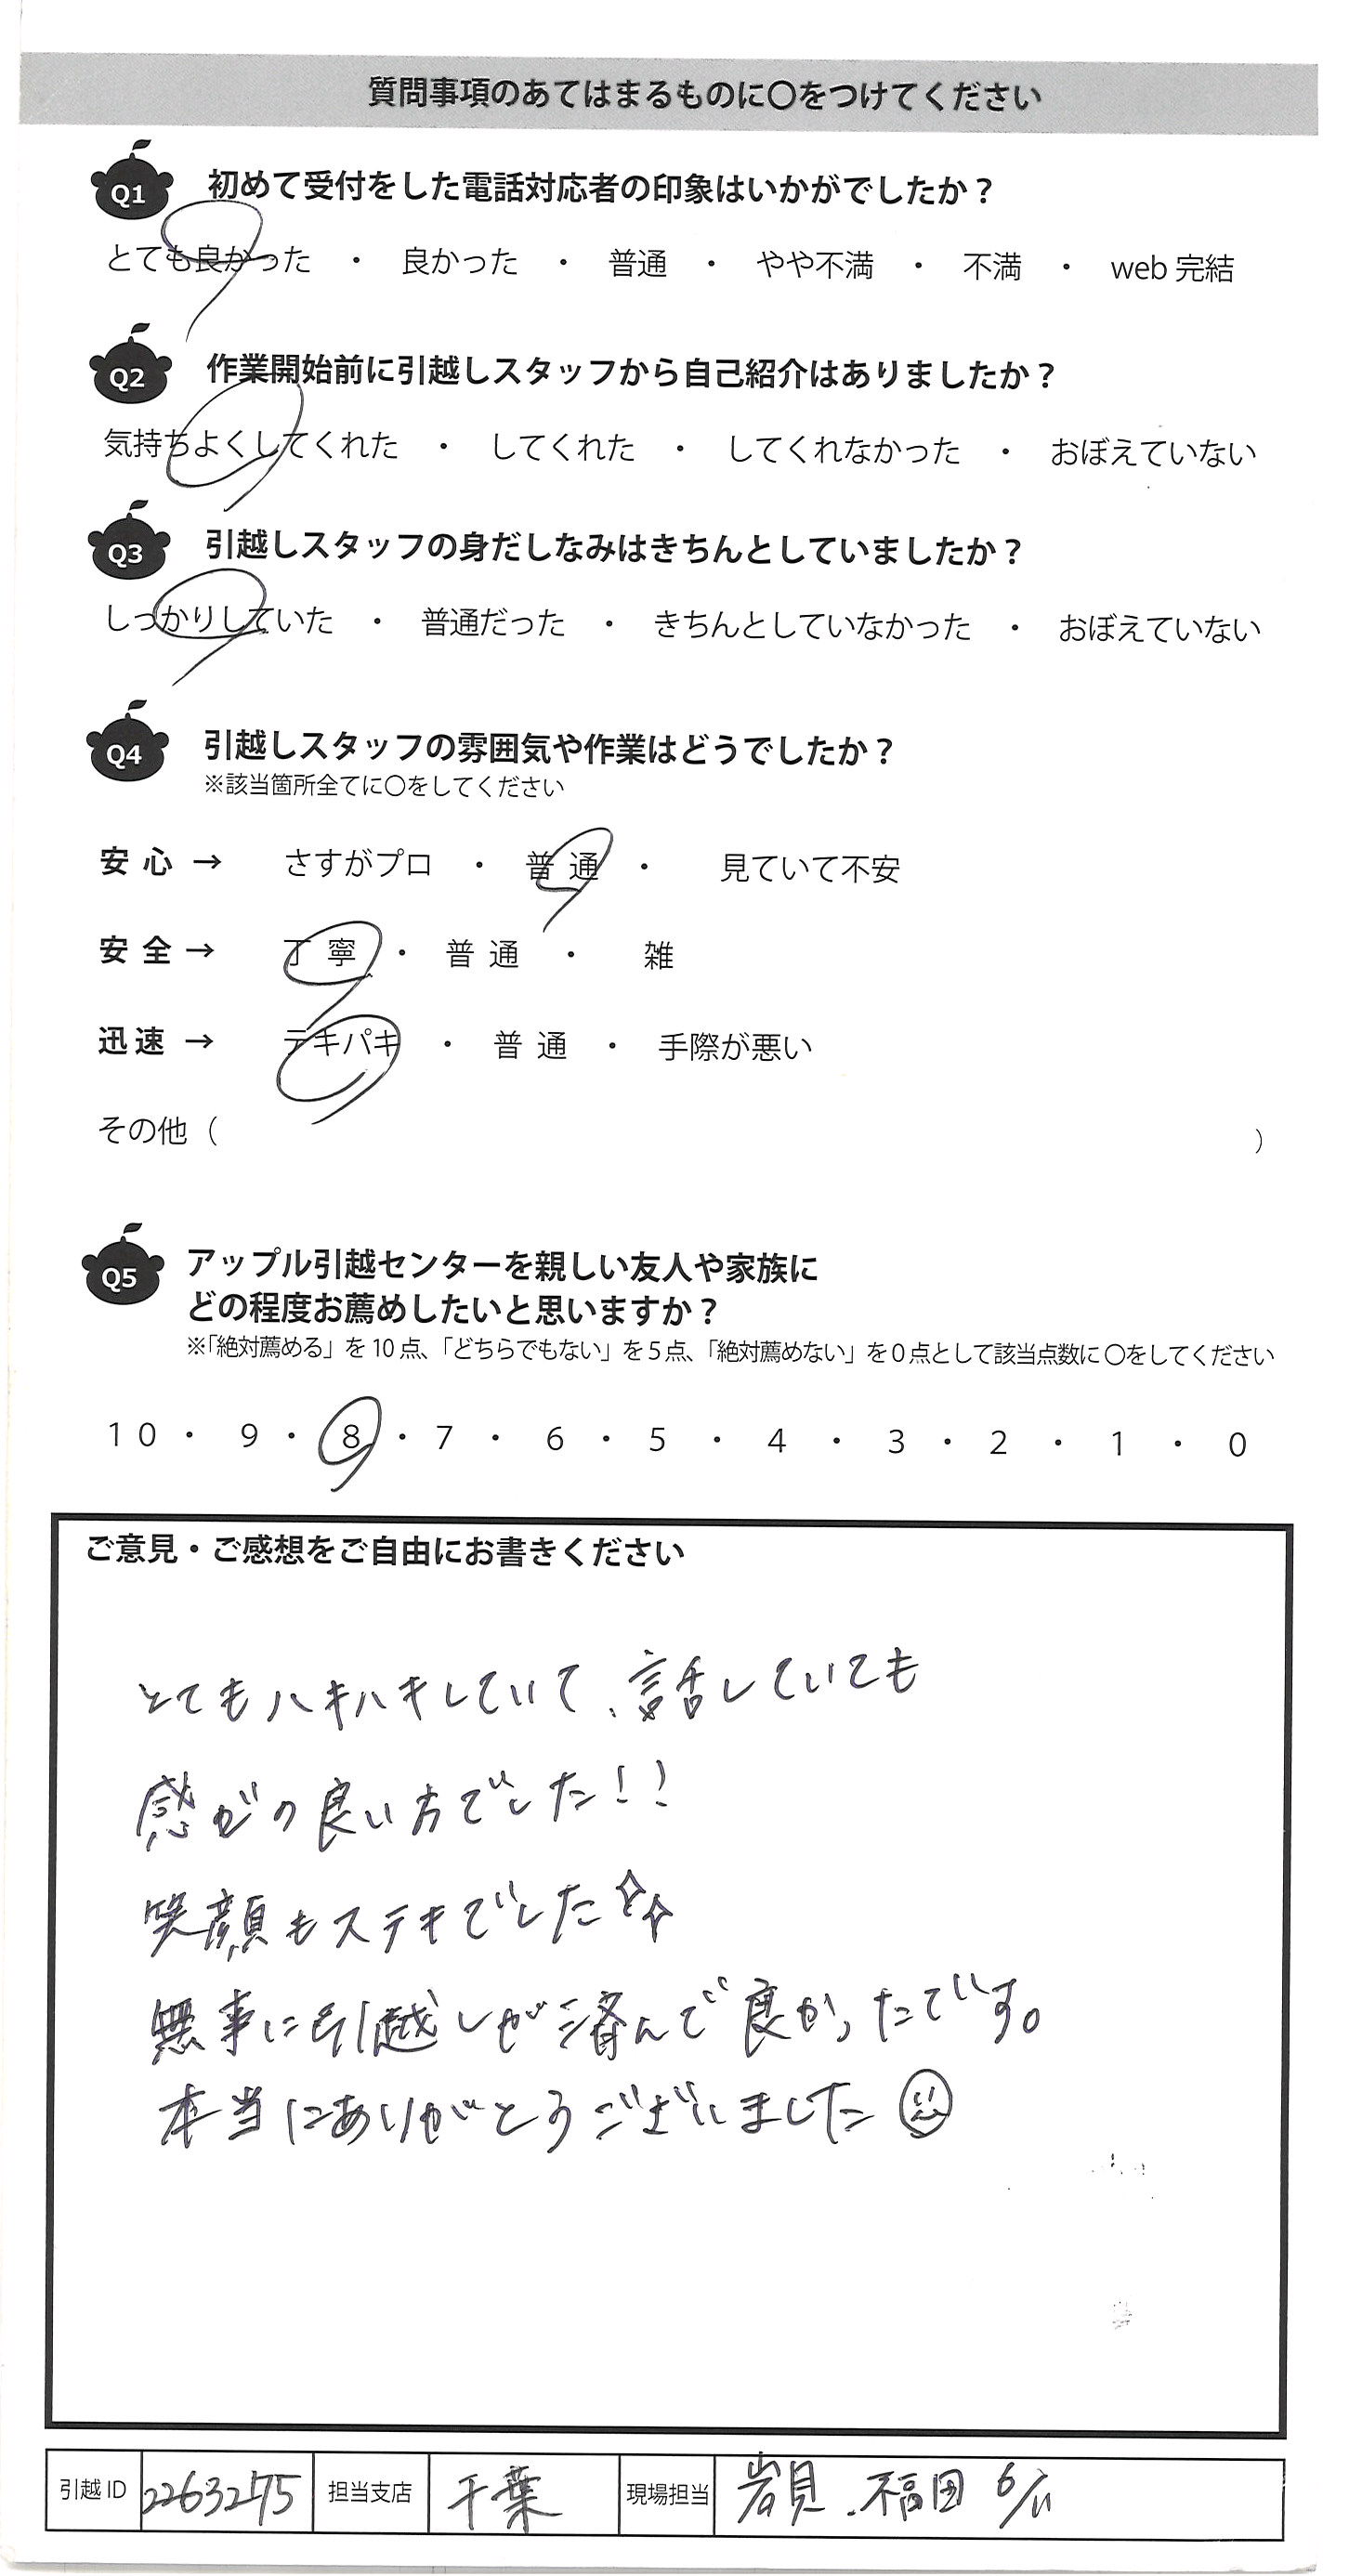 質問事項のあてはまるものに〇をつけてください
Q1 初めて受付をした電話対応者の印象はいかがでしたか？
とても良かった ・ 良かった ・ 普通 ・ やや不満 ・ 不満 ・ web 完結
Q2 作業開始前に引越しスタッフから自己紹介はありましたか？
気持ちよくしてくれた ・ してくれた ・ してくれなかった ・ おぼえていない
Q3 引越しスタッフの身だしなみはきちんとしていましたか？
しっかりしていた ・ 普通だった ・ きちんとしていなかった ・ おぼえていない
Q4 引越しスタッフの雰囲気や作業はどうでしたか？
※該当箇所全てに〇をしてください
安心 → さすがプロ ・ 普通 ・ 見ていて不安
安全 → 丁寧 ・ 普通 ・ 雑
迅速 → テキパキ ・ 普通 ・ 手際が悪い
その他（ ）
Q5 アップル引越センターを親しい友人や家族に
どの程度お薦めしたいと思いますか？
※「絶対薦める」を 10 点、「どちらでもない」を 5 点、「絶対薦めない」を 0 点として該当点数に 〇をしてください
10 ・ 9 ・ 8 ・ 7 ・ 6 ・ 5 ・ 4 ・ 3 ・ 2 ・ 1 ・ 0
ご意見・ご感想をご自由にお書きください
とてもハキハキしていて、話していても
感じの良い方でした！！
笑顔もステキでした
無事に引越しが済んで良かったです。
本当にありがとうございました
引越 ID 22632175 担当支店 千葉 現場担当 岩見、福田 6/11